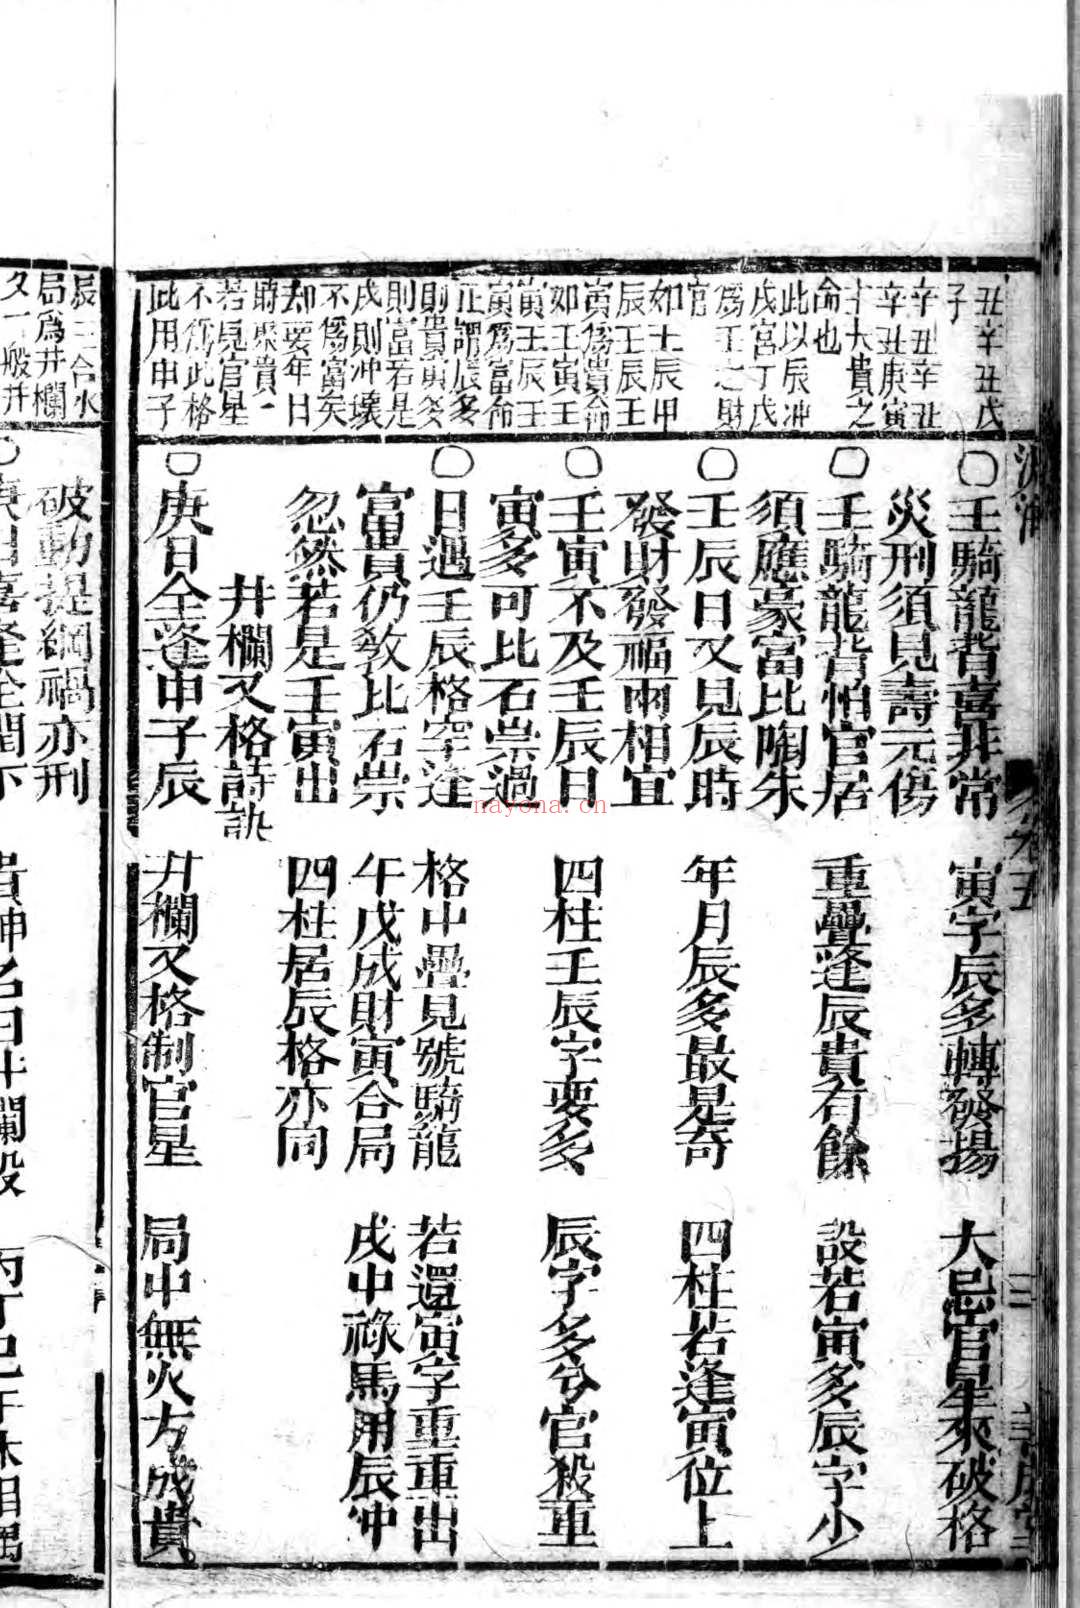 丑辛丑戊
子
辛丑辛丑
辛丑庚寅
十大貴之
命也
此以辰冲
戌宮丁戊
爲壬之財
官
如壬辰甲
辰壬辰壬
寅爲貴命
如壬寅壬
寅壬辰壬
寅爲富命
正謂辰多
則貴寅多
則富若是
戌則冲壞
不爲富矣
却要年日
時聚貴一
若見官星
不爲此格
此用申子
辰三合水
局爲井欄
叉一般井
○壬騎龍背喜非常 寅字辰多轉發揚 大忌官星來破格
災刑須見壽元傷
○壬騎龍背怕官居 重疊逢辰貴有餘 設若寅多辰字少
須應豪富比陶朱
○壬辰日又見辰時 年月辰多最是奇 四柱若逢寅位上
發財發福兩相宜
○壬寅不及壬辰日 四柱壬辰字要多 辰字多兮官殺重
寅多可比石崇過
○日過壬辰格罕逢 格中疊見號騎龍 若還寅字重重出
富貴仍教比石崇 午戊成財寅合局 戌中祿馬用辰冲
忽然若是壬寅出 四柱居辰格亦同
井欄叉格詩訣
○庚日全逢申子辰 井欄叉格制官星 局中無火方成貴
破動提綱禍亦刑
卷五